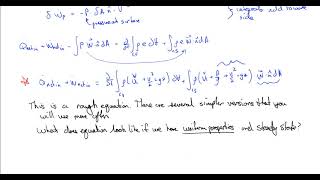 δ Wp = -P δA n̂ · V
pressurised surface
integrals add outside
side
Qnetin + Wnetin - ∫ P w⃗ · n̂ dA = ∂/∂t ∫ ρ e dV + ∫ ρ e w⃗ · n̂ dA
Qnetin + Wnetin = ∂/∂t ∫ ρ (u + v²/2 + gz) dV + ∫ ρ (u + P/ρ + v²/2 + gz) w⃗ · n̂ dA
This is a rough equation. There are several simpler versions that you
will use more often
What does equation look like if we have uniform properties and steady state?